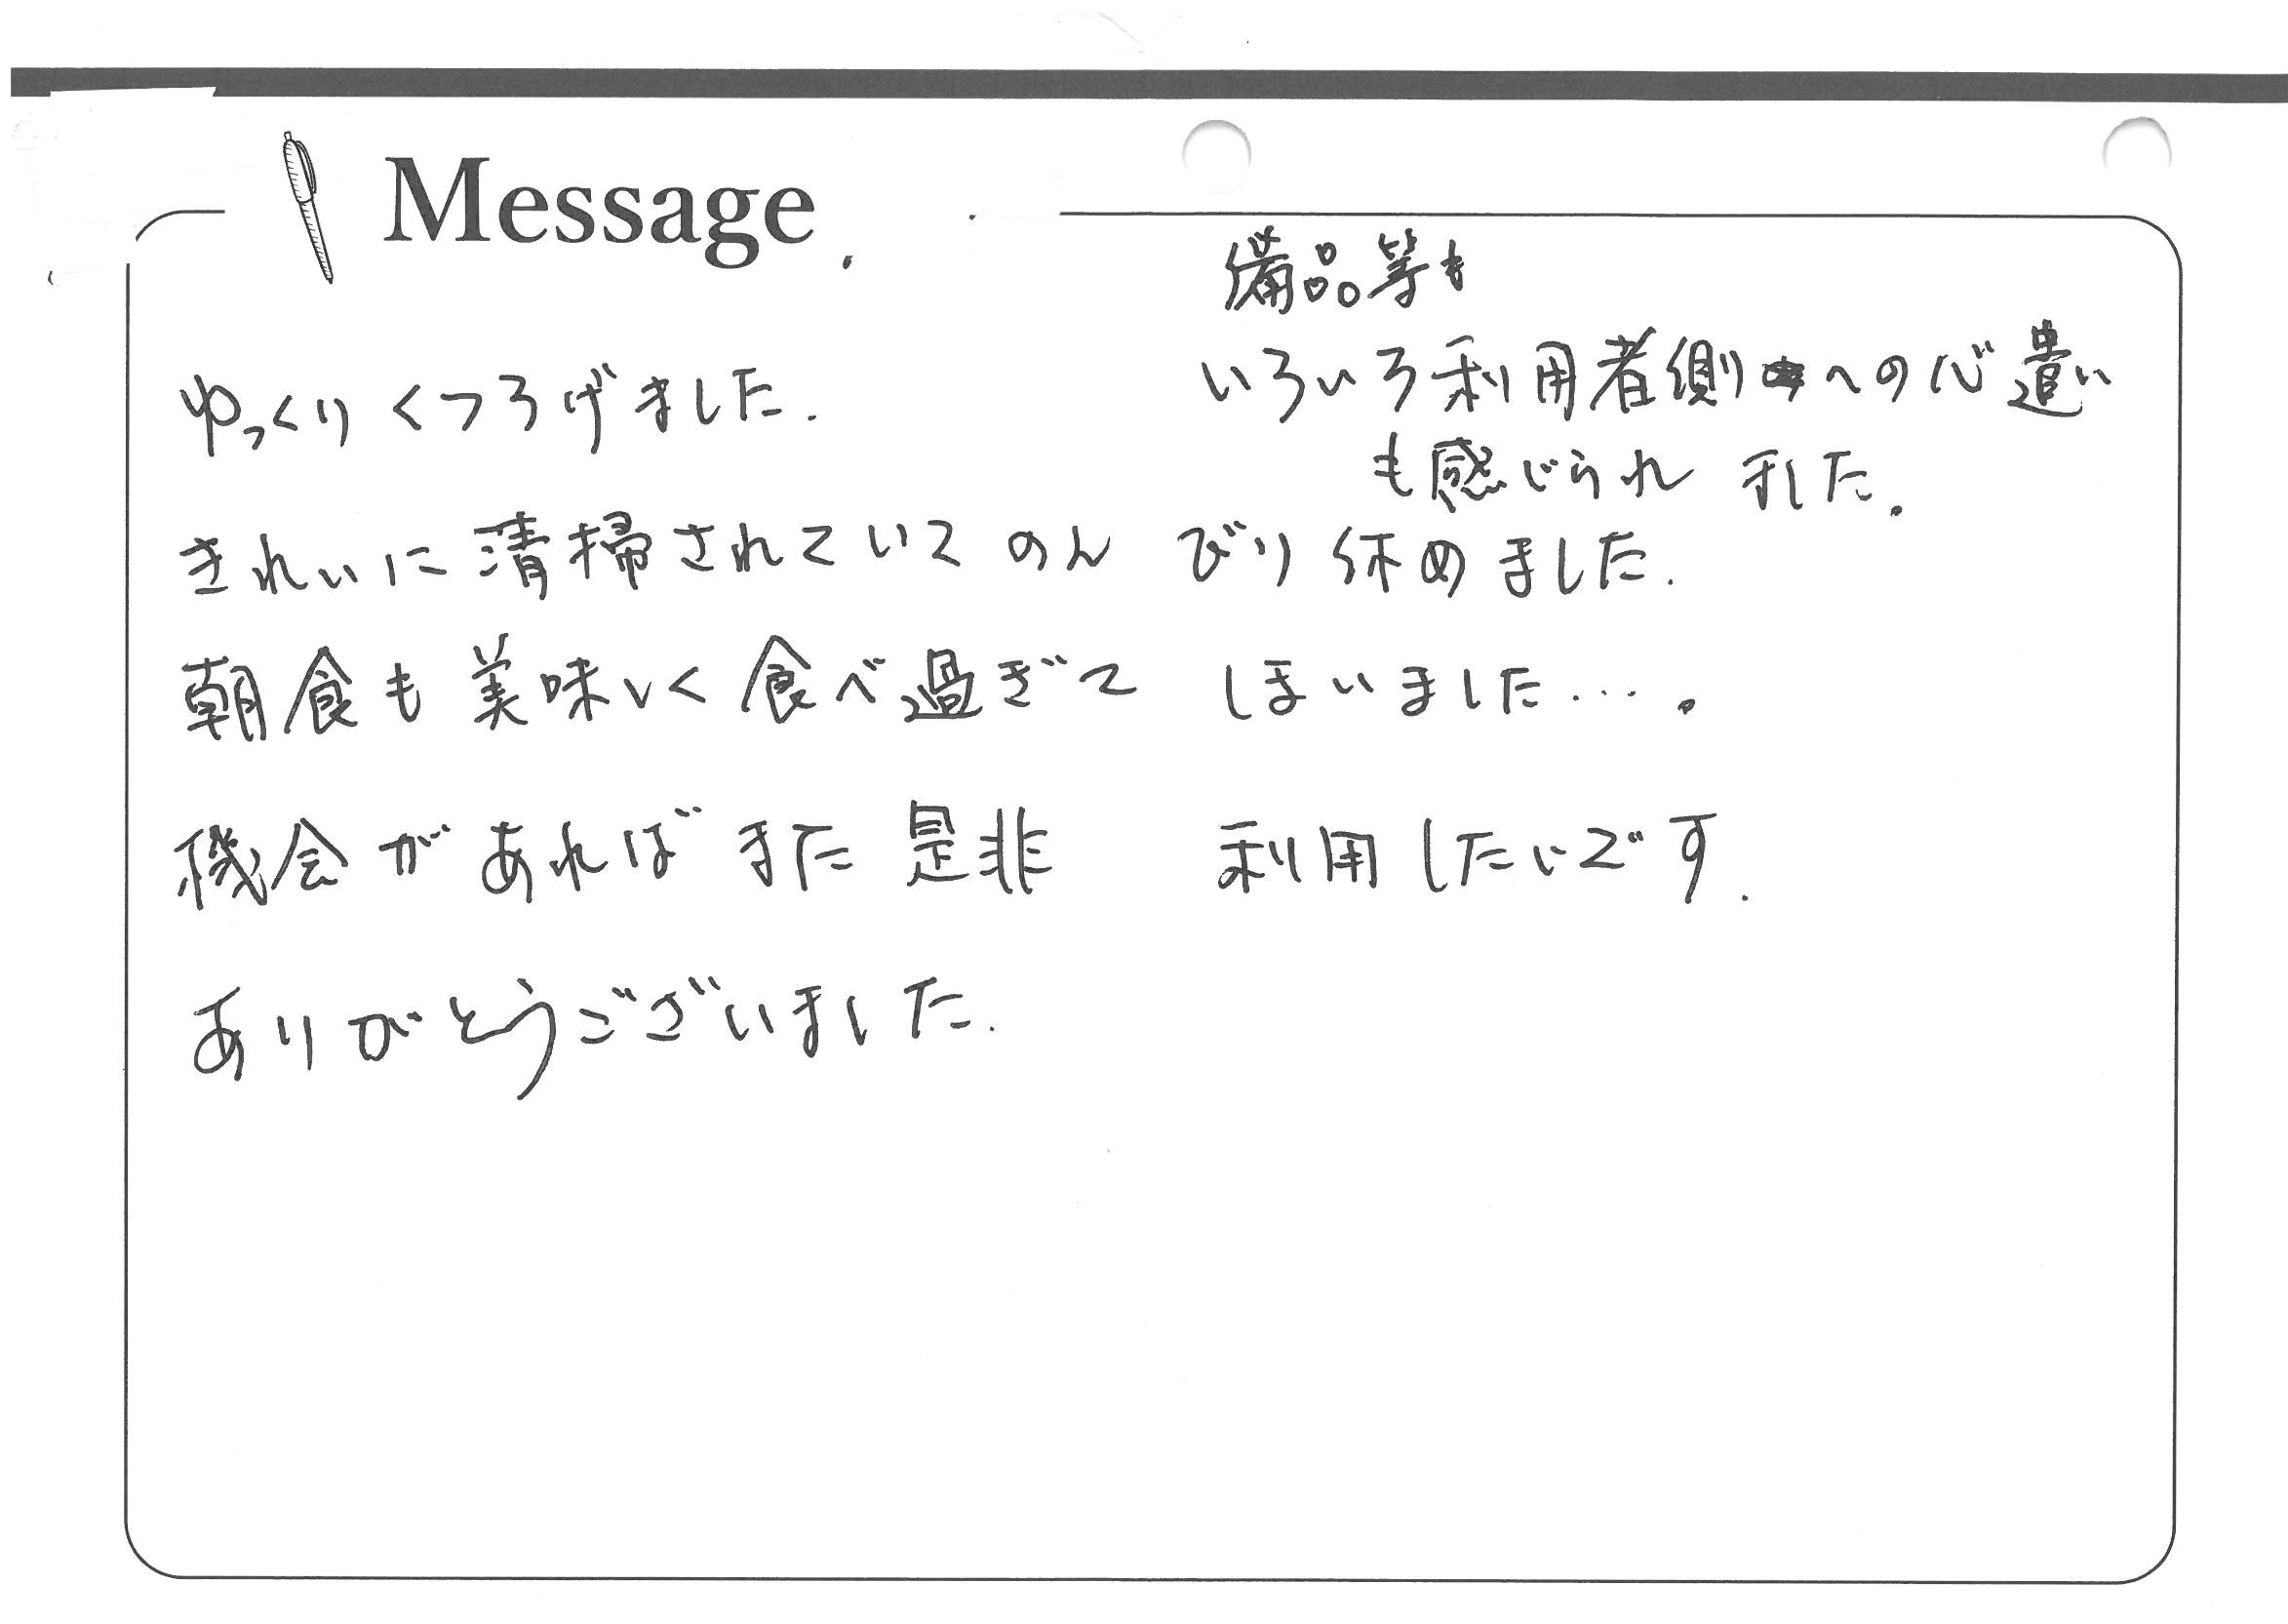 Message
備品等も
ゆっくりくつろげました. いろいろ利用者側への心遣い
も感じられました.
きれいに清掃されていてのんびり休めました.
朝食も美味しく食べ過ぎてしまいました…。
機会があればまた是非 利用したいです.
ありがとうございました.